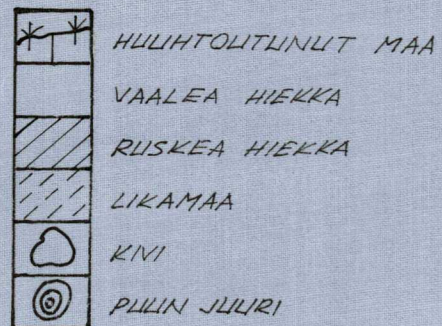 HUUHTOUTUNUT MAA
VAALEA HIEKKA
RUSKEA HIEKKA
LIKAMAA
KIVI
PUUN JUURI